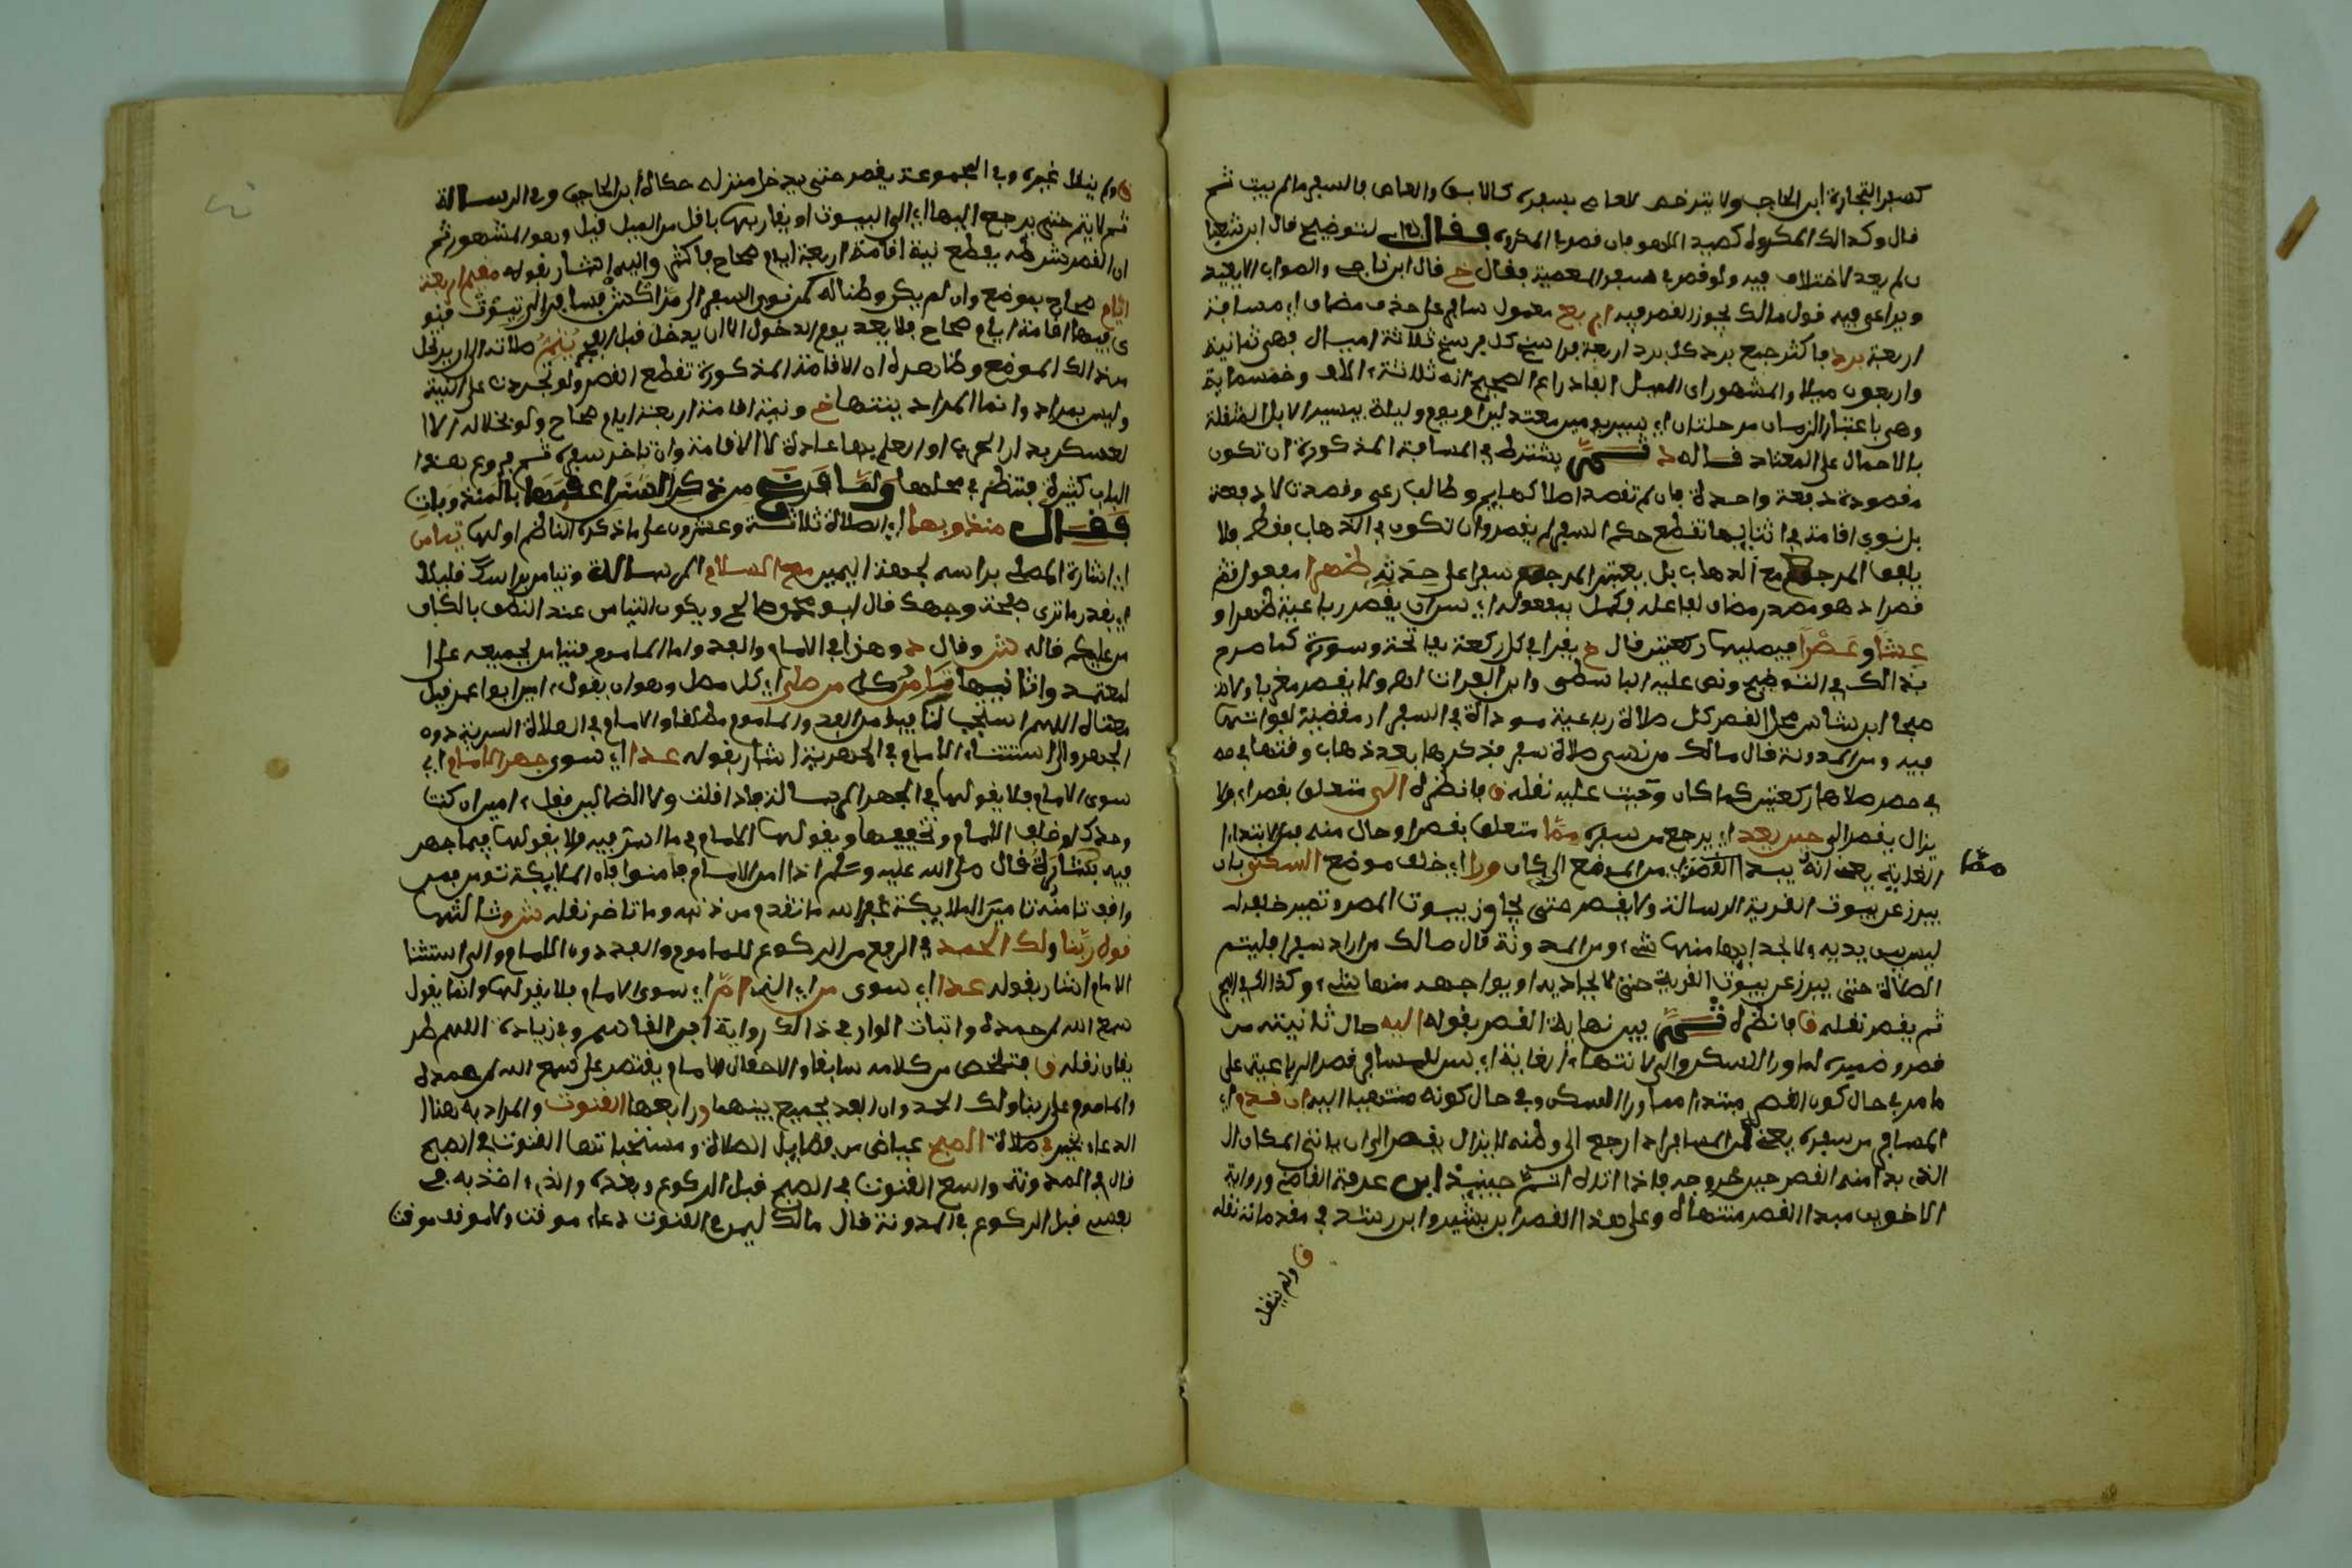 كسفر التجارة ابن الحاجب ولا يترخص العاصي بسفره كالابق والعاصي بالسفر ما لم يتب ثم
قال وكذالك المكروه كصيد اللهو فان قصر المكروه فقال لتوضيح قال ابن شعبان
ان لم يعد لاختلاف فيه ولو قصر في سفر المعصية فقال خ قال ابن ناجي والصواب الا يعيد
ويراعى فيه قول مالك يجوز القصر فيه اربع معمول سافر على حذف مضاف اي مسافة
اربعة برد فاكثر جمع بريد كل بريد اربعة فراسخ كل فرسخ ثلاثة اميال فهي ثمانية
واربعون ميلا والمشهور ان الميل الفا ذراع الصحيح انه ثلاثة ءالاف وخمسماية
وهي باعتبار الزمان مرحلتان اي سير يومين معتدلين او يوم وليلة بسير الابل المثقلة
بالاحمال على المعتاد قاله د يشترط في المسافة المذكورة ان تكون
مقصودة دفعة واحدة فان لم تقصد اصلا كهايم وطالب رعي وقصدت لا دفعة
بل نوى اقامة في اثنايها تقطع حكم السفر لم يقصر وان تكون في الذهاب فقط فلا
يلفق الرجوع مع الذهاب بل يعتبر الرجوع سفرا على حدته ظهرا مفعول قصر
قصرا د هو مصدر مضاف لفاعله فكمل بمفعوله اي سن ان يقصر رباعية ظهرا و
عشا وعصرا فيصليها ركعتين قال خ يقرا في كل ركعة بفاتحة وسورة كما صرح
بذالك في التوضيح ونص عليه الباسطي وابن الفرات اه ولا يقصر مغربا ولا
صبحا ابن شاس محل القصر كل صلاة رباعية موداة في السفر او مقضية لفواتها
فيه ومن المدونة قال مالك من نسي صلاة سفر فذكرها بعد ذهاب وقتها في
في حضر صلاها ركعتين كما كان وجبت عليه نقله ق فانظره الى متعلق بقصر اي ولا
يزال يقصر الى حين يعد اي يرجع من سفره مما متعلق بقصر او حال منه من لابتداء
الغاية يعني انه يبدا القصر من الموضع الكاين ورا اي خلف موضع السكنى بان
مما
يبرز عن بيوت القرية الرسالة ولا يقصر حتى يجاوز بيوت المصر وتصير خلفه
ليس بين يديه ولا بحذايه منها شيء ومن المدونة قال مالك من اراد سفرا فليتم
الصلاة حتى يبرز عن بيوت القرية حتى لا يحاذيه او يواجهه منها شيء وكذالك في
ثم يقصر نقله ق فانظره بين نهاية القصر بقوله اليه حال ثانية من
قصر وضميره لما ورا السكن والى لانتهاء الغاية اي سن للمسافر قصر الرباعية على
ما مر في حال كون القصر مبتدا مما ورا السكن وفي حال كونه منتهيا اليه ان قدم اي
المسافر من سفره يعني ان المسافر اذا رجع الى وطنه لا يزال يقصر الى ان ياتي المكان
الذي بدا منه القصر حين خروجه فاذا اتاه اتم حينئذ ابن عرفة القاضي ورواية
الاخوين مبدا القصر منتهاه وعلى هذا القصر ابن بشير وابن رشد في مقدماته نقله
ق ولم ينقل
ق ولم ينقل غيره وفي المجموعة يقصر حتى يدخل منزله حكاه ابن الحاجب وفي الرسالة
ثم لا يتم حتى يرجع اليها اي الى البيوت او يقاربها باقل من الميل قيل وهو المشهور ثم
ان القصر شرطه يقطع نية اقامة اربعة ايام صحاح فاكثر واليه اشار بقوله مقيم اربعة
ايام صحاح بموضع وان لم يكن وطنا له
ى فيها اقامة ايام صحاح فلا يعد يوم الدخول الا ان يدخل قبل الفجر يتم صلاته الى ان يرتحل
من ذالك الموضع وظاهره ان الاقامة المذكورة تقطع القصر ولو تجردت على النية
وليس بمراد وانما المراد بنيتها خ ونية اقامة اربعة ايام صحاح ولو بخلاله الا
لعسكر بدار الحرب او العلم بها عادة لا الاقامة وان تاخر سفره ثم فروع هذا
الباب كثيرة فتنظر في محلها ولما فرغ من ذكر السنن اعقبها بالمندوبات
فقال مندوبها اي الصلاة ثلاثة وعشرون على ما ذكره الناظم اولها تيامن
اي اشارة المصلي براسه لجهة اليمين مع السلام الرسالة وتيامن براسك قليلا
اي بقدر ما ترى صفحة وجهك قال ابو محمد صالح ويكون التيامن عند النطق بالكاف
من عليكم قاله تت وقال د وهذا في الامام والفذ واما الماموم فتيامن لجميعه على ا
لمعتمد وثانيها تامين كل من صلى اي كل مصل وهو ان يقول ءامين ابو عمر قيل
معناه اللهم استجب لنا فيقولها الفذ والماموم مطلقا والامام في الصلاة السرية دون
الجهر والى استثناء الامام في الجهرية اشار بقوله عدا اي سوى جهر الامام اي
سوى الامام فلا يقولها في الجهر الرسالة فاذا قلت ولا الضالين فقل ءامين ان كنت
وحدك او خلف الامام وتخفيها ويقولها الامام في ما اسر فيه ولا يقولها فيما جهر
فيه بكشارة قال صلى الله عليه وسلم اذا امن الامام فامنوا فان الملايكة تومن فمن
وافق تامينه تامين الملايكة غفر الله ما تقدم من ذنبه وما تاخر نقله ش وثالثها
قول ربنا ولك الحمد في الرفع من الركوع للماموم والفذ دون الامام والى استثنا
الامام اشار بقوله عدا اي سوى من اي الذي ام اي سوى الامام فلا يقولها وانما يقول
سمع الله لمن حمده واثبات الواو في ذالك رواية ابن القاسم وفي زيادة اللهم طر
يقان نقله ق فتلخص من كلامه سابقا ولاحقا ان الامام يقتصر على سمع الله لمن حمده
والماموم على ربنا ولك الحمد وان الفذ يجمع بينهما ورابعها القنوت والمراد به هنا ا
الدعاء بخير في صلاة الصبح عياض من فضايل الصلاة ومستحباتها القنوت في الصبح
قال في المدونة واسع القنوت في الصبح قبل الركوع وبعده والذي ءاخذ به في
نفسي قبل الركوع في المدونة قال مالك ليس في القنوت دعاء موقت ولا موقف موقت